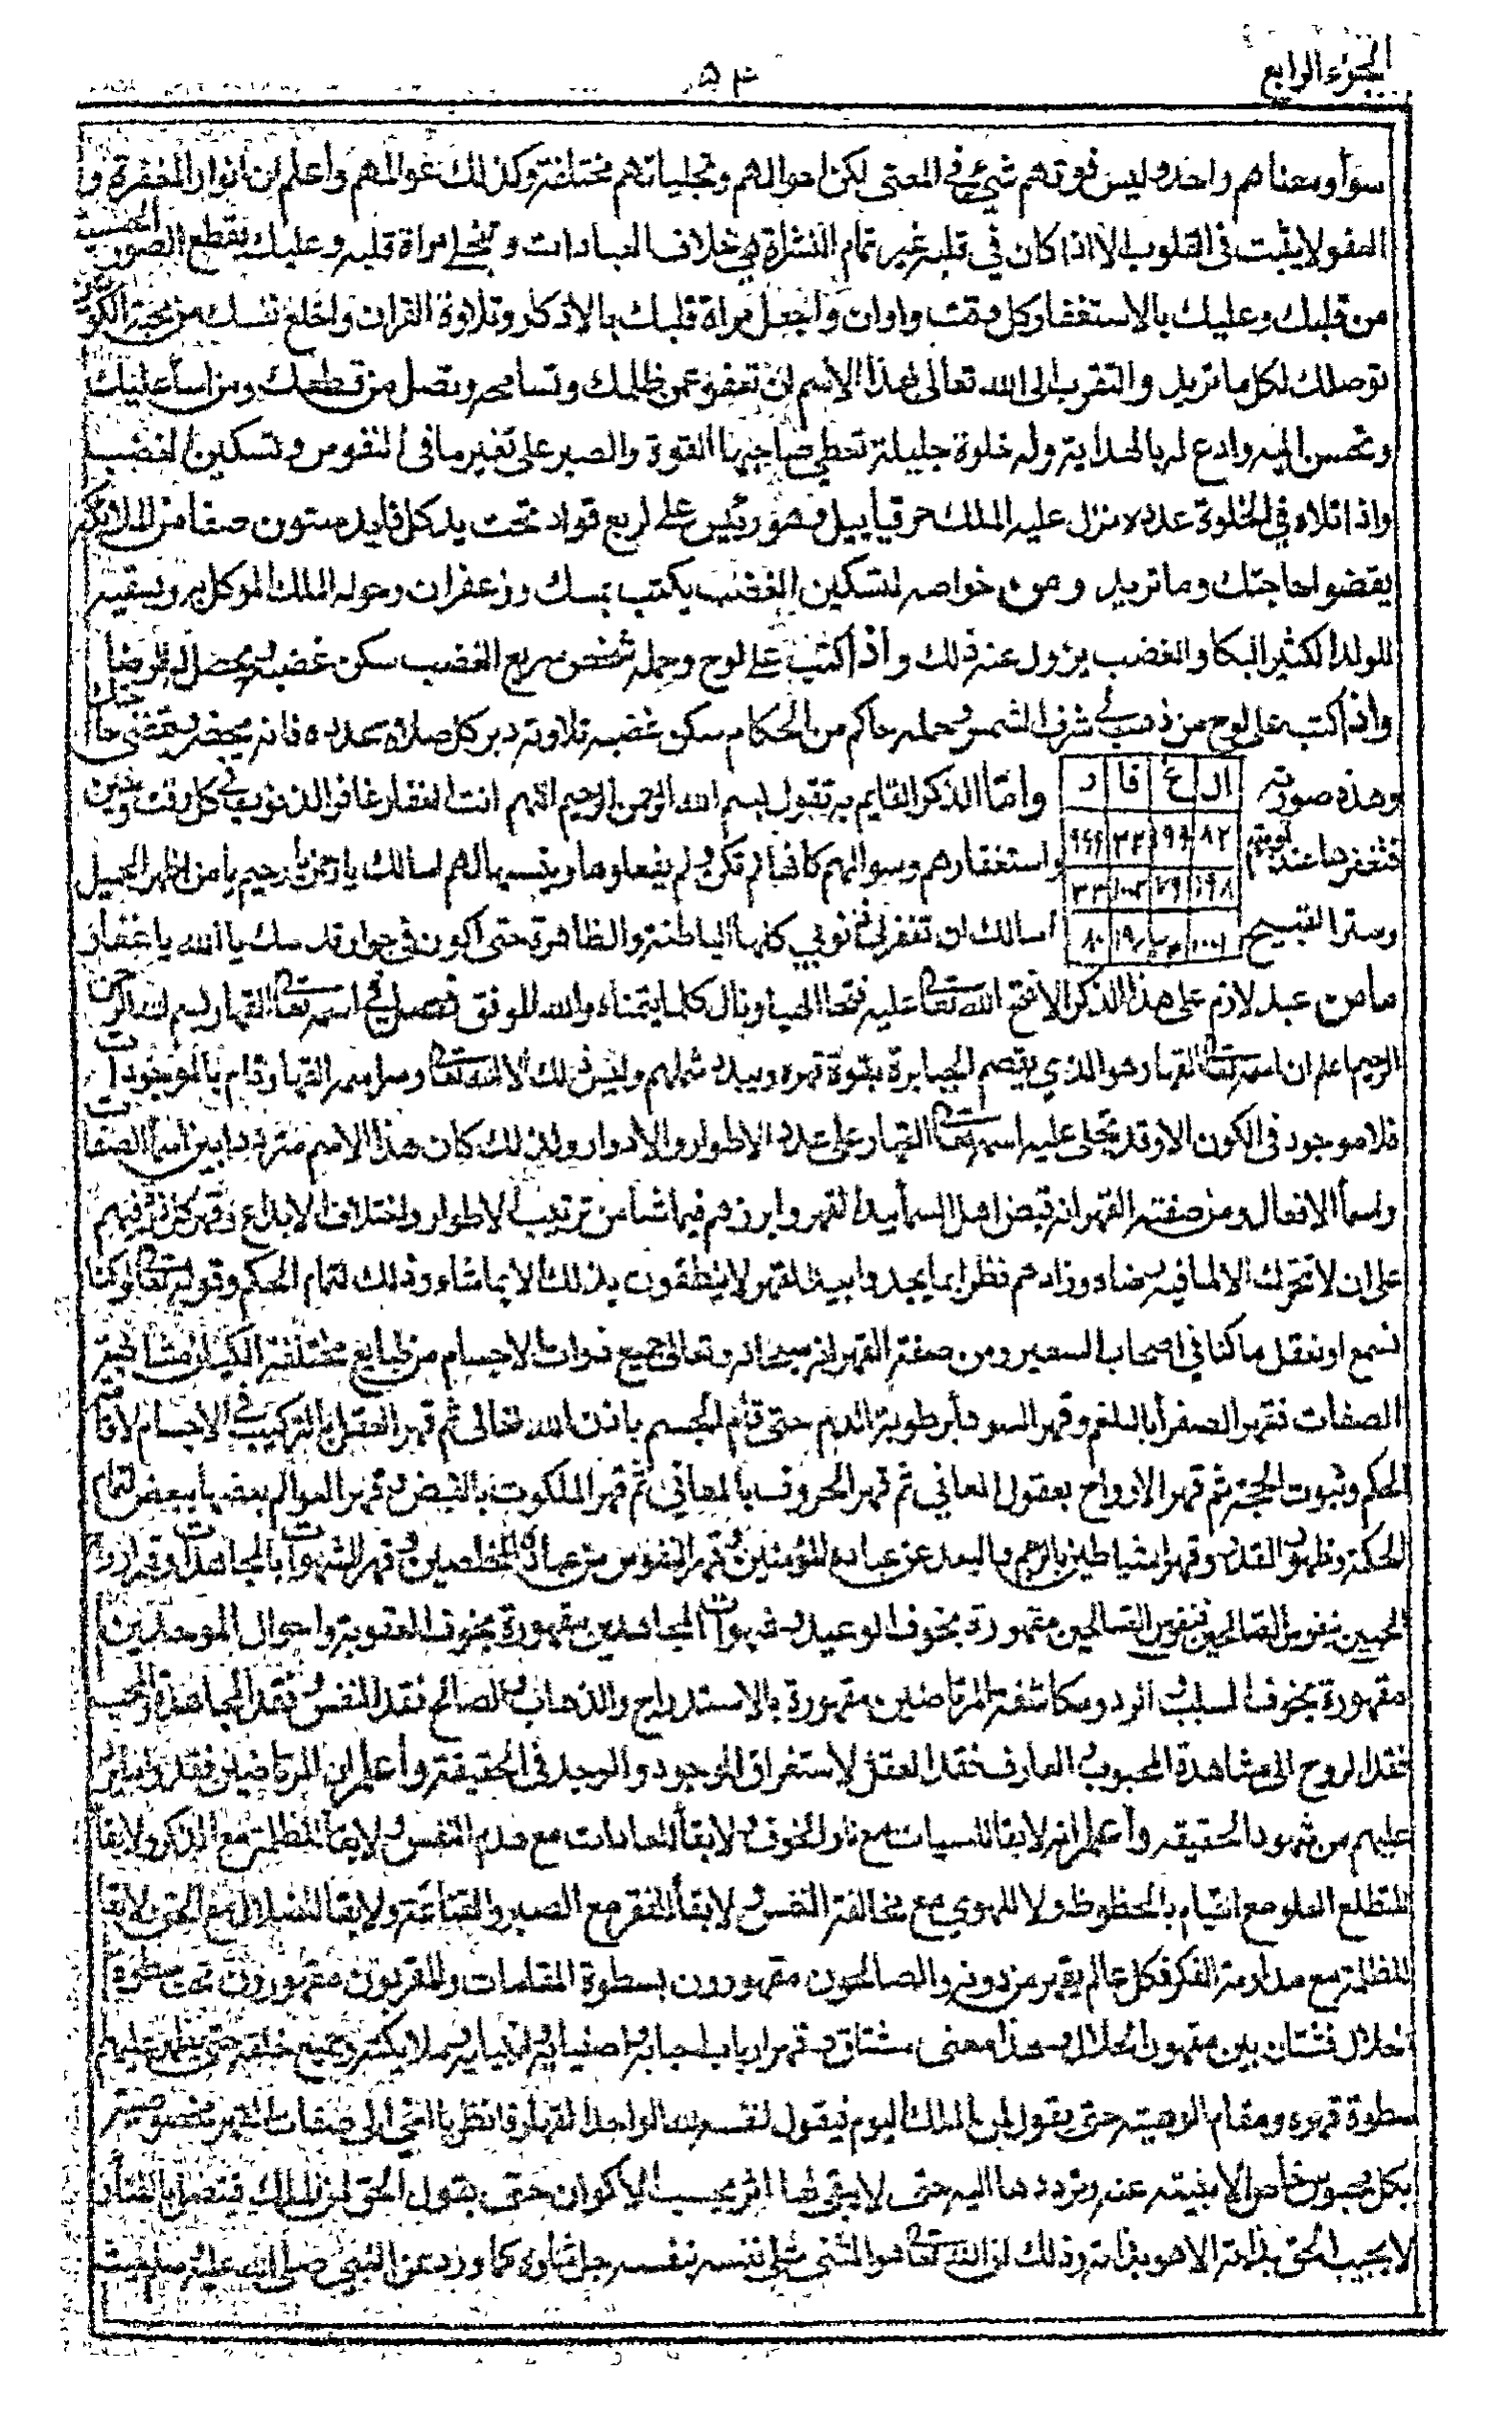 الجزء الرابع
٥٤
سوأ ومعناهم واحد وليس فوتهم شيئ في المعنى لكن احوالهم وتجلياتهم مختلفة وكذلك عوالمهم وأعلم ان انوار المغفرة و
العفو لا يثبت في القلوب الا اذا كان في قلبه غير تمام النشراة في خلاف العبادات وتنجلي مراة قلبه وعليك بقطع الصور الخبيثة
من قلبك وعليك بالاستغفار كل وقت واوان وأجعل مراة قلبك بالاذكار وتلاوة القران واخلع نفسك من محبة الكونين
توصلك لكل ما تريد والتقرب الى الله تعالى بهذا الاسم ان تعفو عمن ظلمك وتسامحه وتصل من قطعك ومن اسأ عليك
وتحسن اليه وادع له بالهداية وله خلوة جليلة تعطي صاحبها القوة والصبر على تغير ما في النفوس وتسكين الغضب
واذا تلاه في الخلوة عدده نزل عليه الملك حرقيأييل وهو رئيس على اربع قواد تحت يد كل قايد ستون صفا من الملائكة
يقضوا حاجتك وما تريد ومن خواصه لتسكين الغضب يكتب بمسك وزعفران وحوله الملك الموكل به ويسقيه
للولد الكثير البكا والغضب يزول عنه ذلك وأذا كتب على لوح وحمله شخص سريع الغضب سكن غضبه ويحصل له الرضا
وأذا كتبه على لوح من ذهب في شرف الشمس وحمله حاكم من الحكام سكن غضبه تلاوته دبر كل صلاة عدده فانه يحضر ويقضى حاجتك
وهذه صورته
ال غ فا ر
وامّا الذكر القايم به تقول بسم الله الرحمن الرحيم اللهم انت الغفار غافر الذنوب في كل وقت وحين
فتغفرها عند توبتهم
٨٢ ٩٩٩ ٣٢ ١٩٩
واستغفارهم وسوالهم كانها لم تكن ولم يفعلوها ربهم اسالك يا رحمن يا رحيم يا من اظهر الجميل
١٩٨ ٧٩ ١٠٠٢ ٣٣
وستر القبيح
١٠٠١ ١٩ ٨٠
اسالك ان تغفر لي ذنوبي كلها الباطنة والظاهرة حتى اكون في جوار قدسك يا الله يا غفار
ما من عبد لازم على هذا الذكر الا فتح الله تعالى عليه فتحا الهيا ونال كلما يتمناه والله الموفق فصل في اسمه تعالى القهار بسم الله الرحمن
الرحيم اعلم ان اسمه تعالى القهار هو الذي يقصم الجبابرة بقوة قهره ويبدد شملهم وليس ذلك الا لله تعالى وسر اسمه القهار قام بالموجودات
فلا موجود في الكون الا وقد تجلى عليه اسمه تعالى القهار على عدد الاطوار والادوار ولذلك كان هذا الاسم مترددا بين اسمأ الصفات
واسمأ الافعال ومن صفته القهر انه قبض اهل السمأ بيد القهر وابرزهم فيما شأ من ترتيب الاطوار واختلاف الابداع وقهر
على ان لا تحرك الا لما فيه رضاه وزادهم نظرا بما يجدوا بيد القهر لا ينطقون بذلك الا بما شاء وذلك لتمام الحكم وقوله تعالى لو كنا
نسمع او نعقل ما كنا في اصحاب السعير ومن صفته القهر انه سبحانه وتعالى جميع ذوات الاجسام من طبايع مختلفة الكيان
الصفات فقهر الصفرأ بالبلغم وقهر السودأ برطوبة الدم حتى قام الجسم باذن الله تعالى ثم قهر العقل بالتركيب في الاجسام لاقامة
الحكم وثبوت الحجة ثم قهر الارواح بعقول المعاني ثم قهر الحروف بالمعاني ثم قهر الملكوت بالقبض وقهر العوالم بعضها ببعض لتمام
الحكمة وظهور القدرة وقهر الشياطين بالرجم وبالبعد عن عباده المؤمنين وقهر النفوس من عباده المخلصين وقهر الشهوات بالمجاهدات وقهر ارواح
المحبين بنفوس الصالحين فنفوس الصالحين مقهورة بخوف الوعيد وشهوات المجاهدين مقهورة بخوف العقوبة واحوال الموحدين
مقهورة بخوف السلب الرد ومكاشفة المرتاضين مقهورة بالاستدراج والذهاب والصالح فقد النفس وفقد المجاهدة والمحب
فقد الروح الى مشاهدة المحبوب العارف فقد العقل لاستغراق الوجود والوجد في الحقيقة وأعلم ان المرتاضين فقدوا
عليهم من شهود الحقيقه وأعلم انه لا بقا للسيات مع نار الخوف ولا بقأ للعادات مع هدم النفس ولا بقأ للظلمة مع الذكر ولا بقأ
للتطلع العلو مع القيام بالحظوظ ولا للهوي مع مخالفة النفس ولا بقأ للفقر مع الصبر والقناعة ولا بقأ للضلال مع الحق ولا بقا
للظلمة مع مداومة الفكر فكل عالم يقهر من دونه والصالحون مقهورون بسطوة المقامات والمقربون مقهورون تحت سطوة
الجلال فشتان بين مقهور الجلال وهذا معنى مشتاق وقهر ارباب احبابه اصفيائه انبيائه ملائكته وجميع خلقه حتى يظهر عليهم
سطوة قهره ومقام الوهيته حتى يقول لمن الملك اليوم فيقول لنفسه لله الواحد القهار فانظر يا اخي الى صفات القهر مخصوصة
بكل محبوب خاص الابنيته عنه وتردد ها اليه حتى لا يبقى لها اثر بحسب الاكوان حتى يقول الحق لمن الملك
لا يجيب الحق بذاته الا هو بذاته وذلك لان الله تعالى هو المثنى على نفسه بنفسه جل ثناوه كما ورد عن النبي صلى الله عليه وسلم حيث